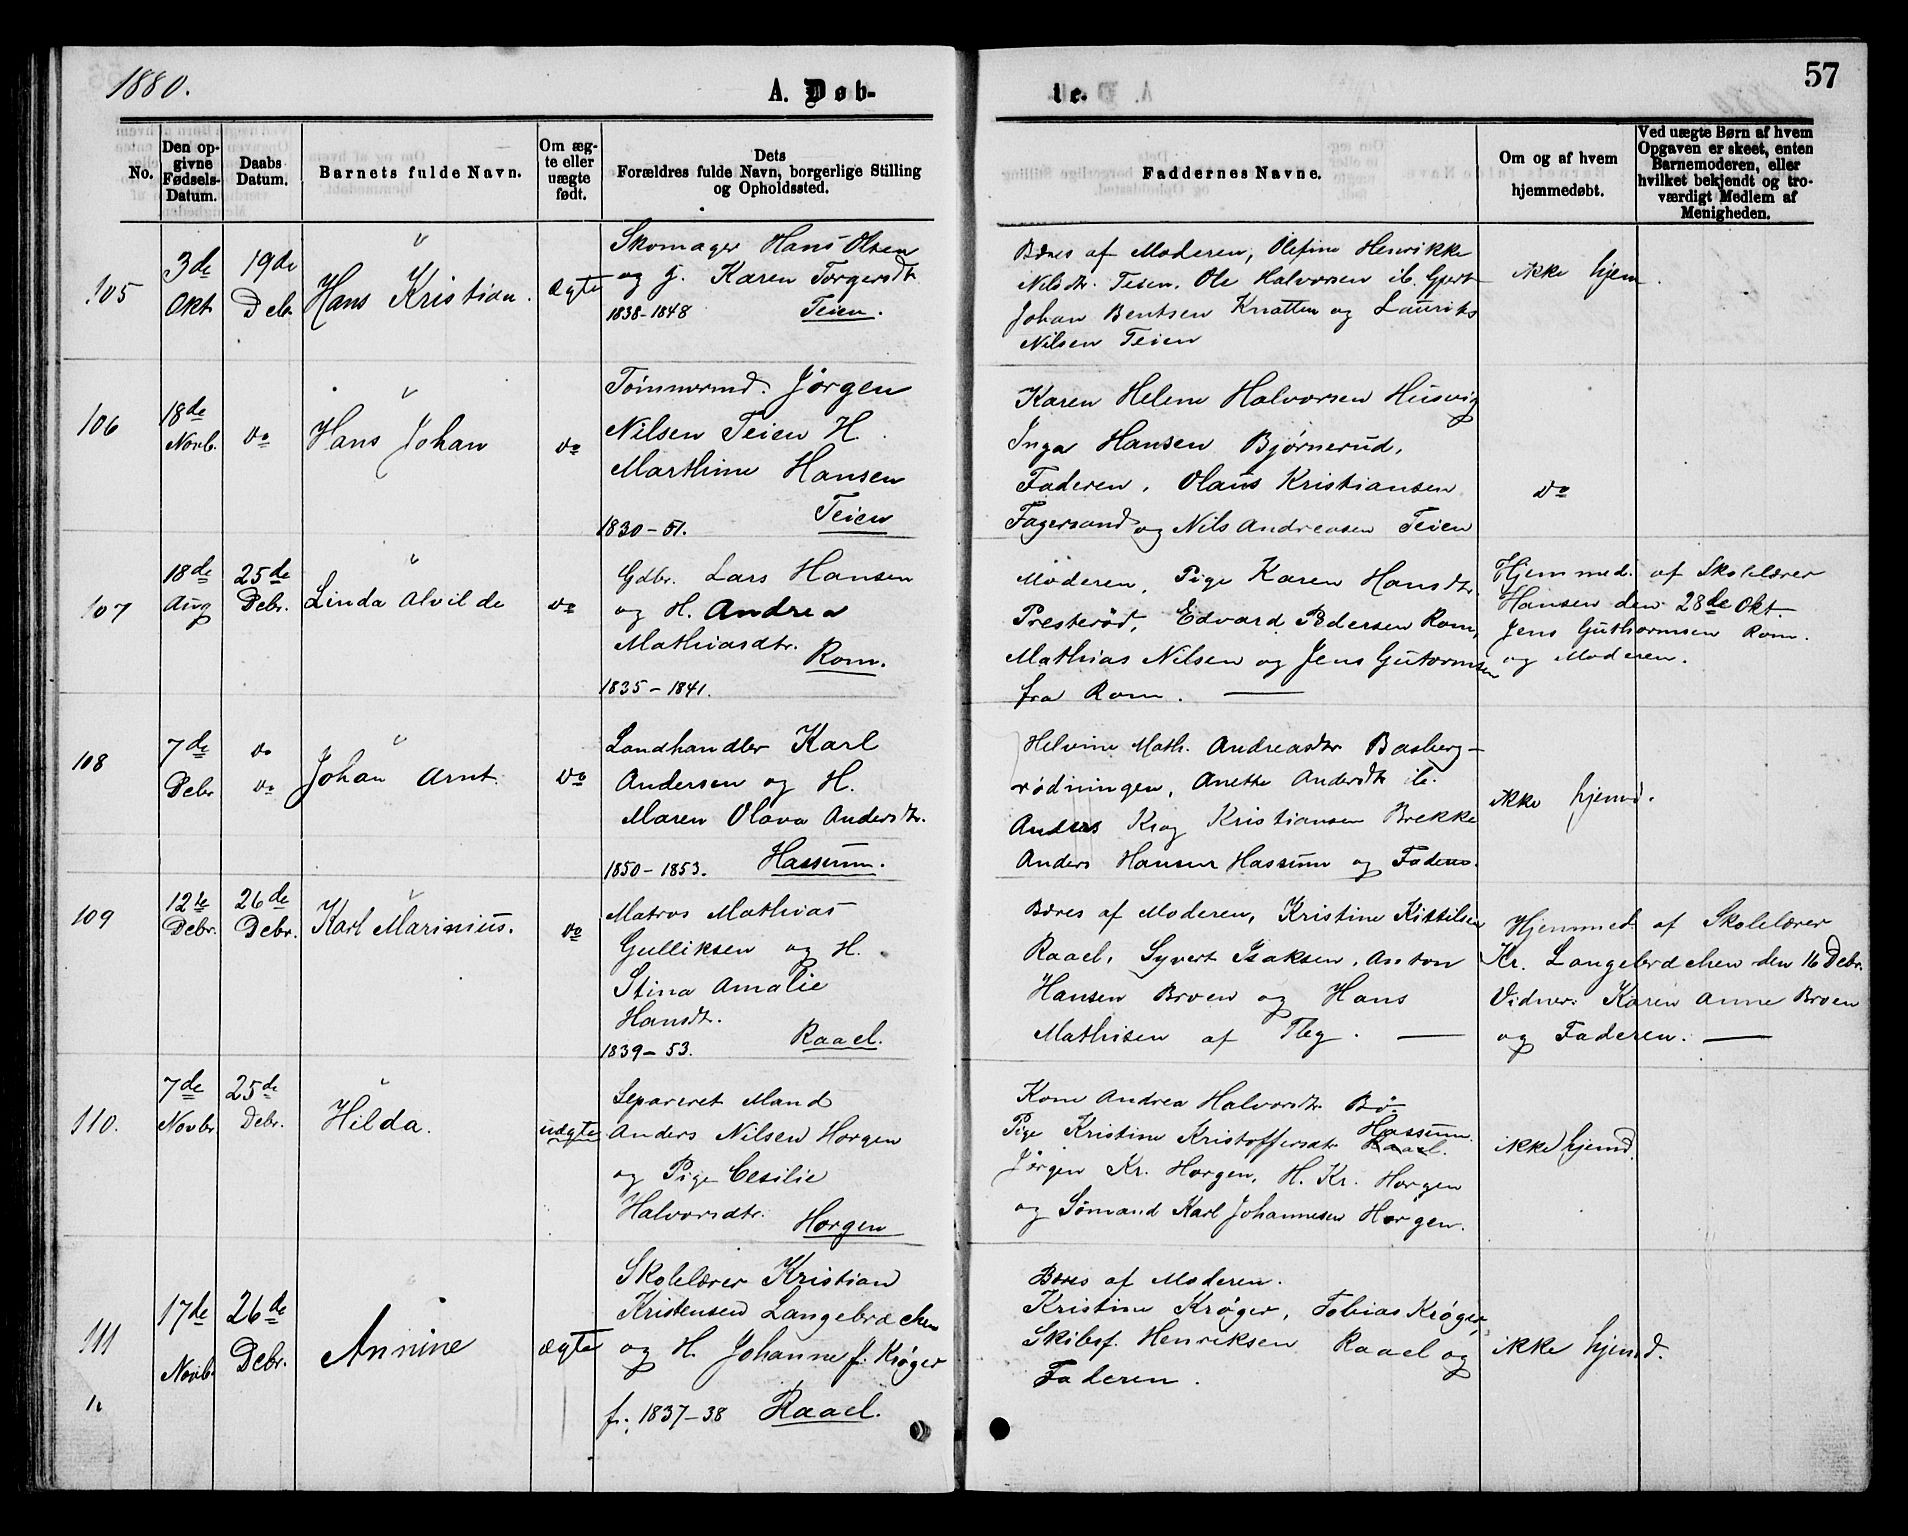 1880.
A. Døb-
te.
57
No.
Den op-
givne
Fødsels-
Datum.
Daabs
Datum.
Barnets fulde Navn.
Om æg-
te eller
uægte
født.
Dets
Forældres fulde Navn, borgerlige Stilling
og Opholdssted.
Faddernes Navne.
Om og af hvem
hjemmedøbt.
Ved uægte Børn af hvem
Opgaven er skeet, enten
Barnemoderen, eller
hvilket bekjendt og tro-
værdigt Medlem af
Menigheden.
105
3de
Okt.
19de
Deb.
Hans Kristian.
ægte
Skomager Hans Olsen
og g. Karen Torgersdtr
1838-1848 Teien.
Bæres af Moderen, Olefine Henrikke
Nilsdtr. Teien, Ole Halvorsen ib. Gjert
Johan Bentsen Knatten og Laurits
Nilsen Teien
ikke hjem.
106
18de
Novb.
do
Hans Johan
do
Tømmermd. Jørgen
Nilsen Teien H.
Marthine Hansen
Teien
1830-51.
Karen Helene Halvorsen Husvig
Inga Hansen Bjørnerud,
Faderen, Olaus Kristiansen
Fagersand og Nils Andreasen Teien
do
107
18de
Aug
25de
Debr.
Linda Alvilde
do
Gdbr. Lars Hansen
og H. Andrea
Mathiasdtr.
Rom.
1835-1841.
Moderen, Pige Karen Hansdtr.
Presterød, Edvard Pedersen Rom,
Mathias Nilsen og Jens Gutormsen
fra Rom.
Hjemmed. af Skolelærer
Hansen den 28de Okt.
Jens Guthormsen Rom.
og Moderen.
108
7de
Debr
do
do
Johan Arnt.
do
Landhandler Karl
Andersen og H.
Maren Olava Andersdtr.
1850-1853. Hassum.
Helvine Math. Andreasdtr Basberg-
rødningen, Anette Andersdtr ib.
Anders Krog Kristiansen Brekke
Anders Hansen Hassum og Faderen.
ikke hjemd.
109
12te
Debr.
26de
Debr.
Karl Marinius.
do
Matros Mathias
Gulliksen og H.
Stina Amalie
Hansdtr.
1839-53. Raael.
Bæres af Moderen, Kristine Kittilsen
Raael, Syvert Isaksen, Anton
Hansen Broen og Hans
Mathisen af Tbg.
Hjemmed. af Skolelærer
Kr. Langebrachen den 16 Debr.
Vidner: Karen Anne Broen
og Faderen.
110.
7de
Novbr
25de
Debr.
Hilda.
uægte
Separeret Mand
Anders Nilsen Horgen
og Pige Cesilie
Halvorsdtr.
Horgen
Kone Andrea Halvorsdtr Bø.
Hassum.
Pige Kristine Kristoffersdtr Raael.
Jørgen Kr. Horgen, H. Kr. Horgen
og Sømand Karl Johannesen Horgen.
ikke hjemd.
111
17de
Novb.
26de
Debr.
Annine
ægte
Skolelærer Kristian
Kristensen Langebrachen
og H. Johanne f. Krøger
f. 1837-38 Raael.
Bæres af Moderen.
Kristine Krøger, Tobias Krøger,
Skibsf. Henriksen Raael og
Faderen.
ikke hjemd.